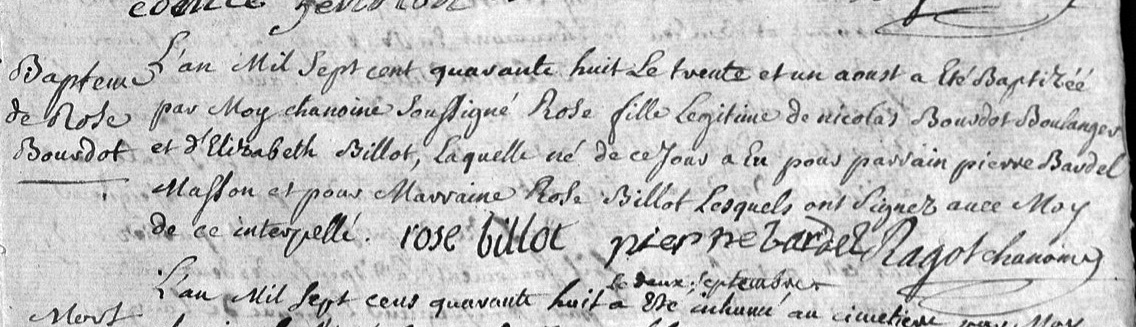 Baptem
de Rose
Bourdot
L'an Mil Sept cent quarante huit Le trente et un aoust a Eté Baptizéé
par Moy chanoine Soussigné Rose fille Legitime de nicolas Bourdot Boulanger
et d'Elizabeth Billot, Laquelle né de ce Jour a Eu pour parrain pierre Bardel
Masson et pour Marraine Rose Billot Lesquels ont Signez avec Moy
de ce interpellé. rose billot pierre bardel Ragot chanoine
le deux Septembre
Mort
L'an Mil Sept cens quarante huit a Eté inhumé au cimetiere